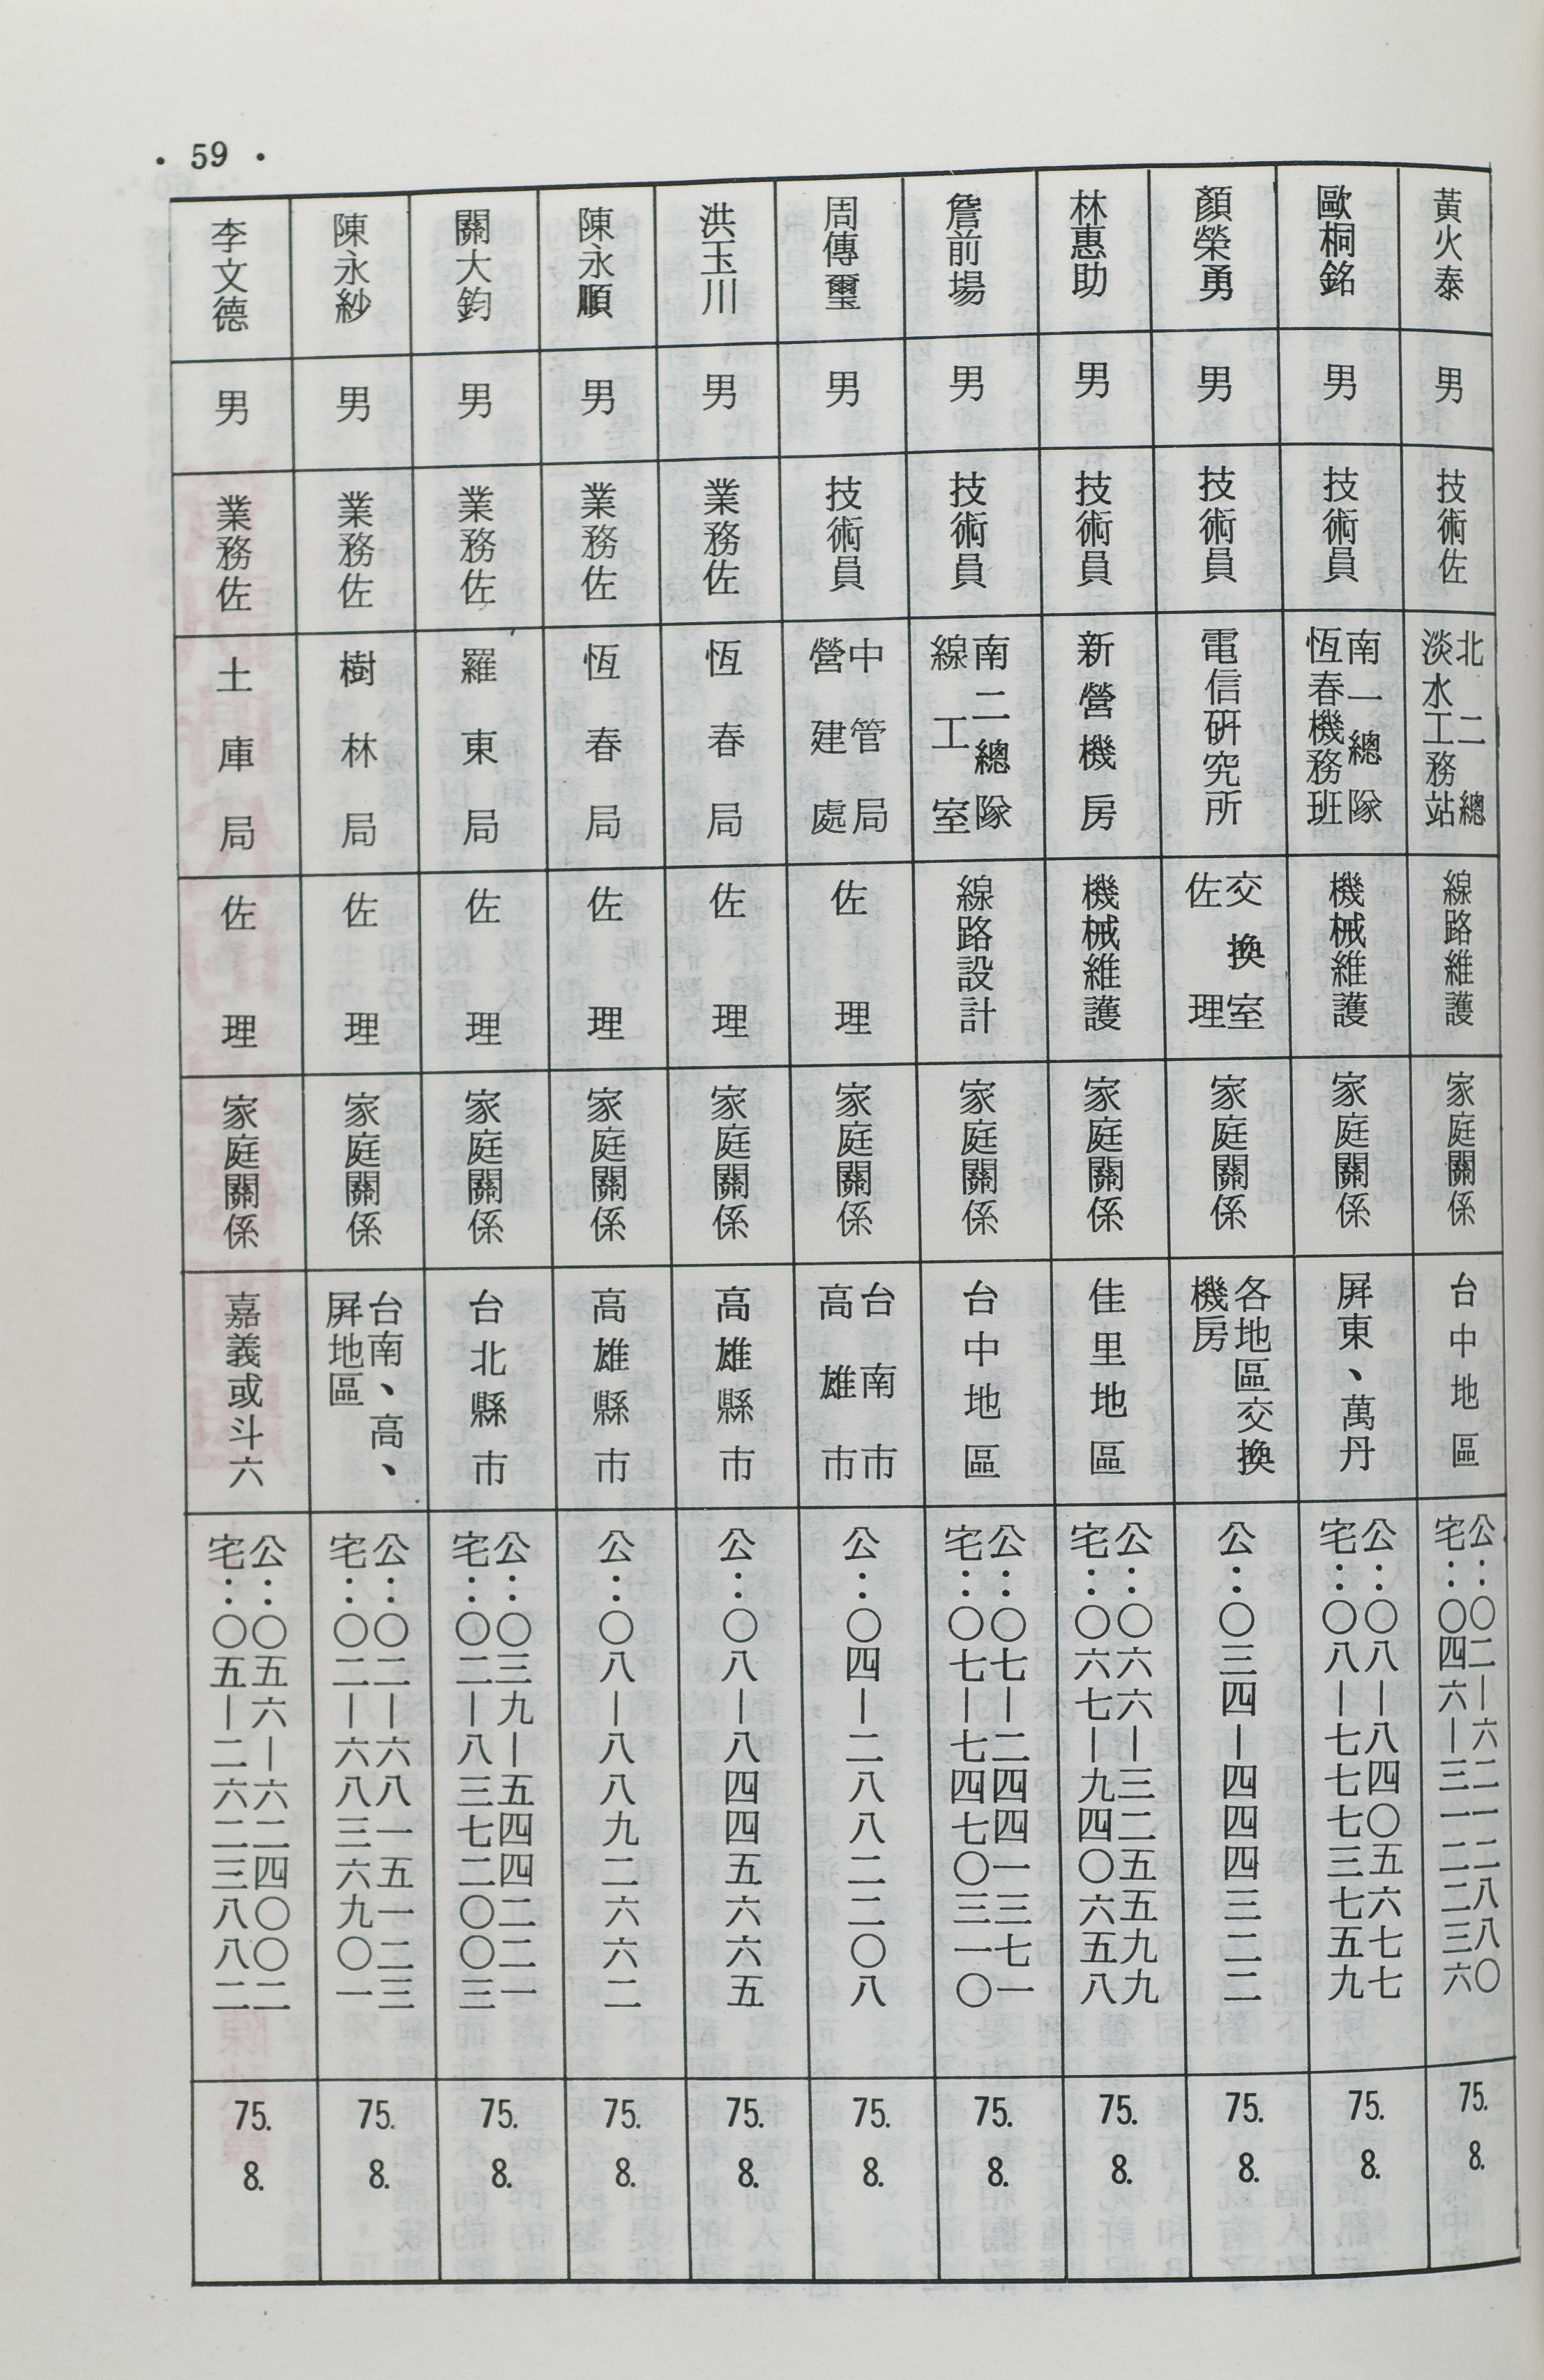 • 59 •
黃火泰
男
技術佐
北二總
淡水工務站
線路維護
家庭關係
台中地區
公：〇二—六二一二八八〇
宅：〇四六—三一二二三六
75.
8.
歐桐銘
男
技術員
南一總隊
恆春機務班
機械維護
家庭關係
屏東、萬丹
公：〇八—八四〇五六七七
宅：〇八—七七七三七五九
75.
8.
顏榮勇
男
技術員
電信研究所
交換室
佐理
家庭關係
各地區交換
機房
公：〇三四—四四四三二二
75.
8.
林惠助
男
技術員
新營機房
機械維護
家庭關係
佳里地區
公：〇六六—三二五五九九
宅：〇六七—九四〇六五八
75.
8.
詹前場
男
技術員
南二總隊
線工室
線路設計
家庭關係
台中地區
公：〇七—二四四一三七一
宅：〇七—七四七〇三一〇
75.
8.
周傳璽
男
技術員
中管局
營建處
佐理
家庭關係
台南市
高雄市
公：〇四—二八八二二〇八
75.
8.
洪玉川
男
業務佐
恆春局
佐理
家庭關係
高雄縣市
公：〇八—八四四五六六五
75.
8.
陳永順
男
業務佐
恆春局
佐理
家庭關係
高雄縣市
公：〇八—八八九二六六二
75.
8.
關大鈞
男
業務佐
羅東局
佐理
家庭關係
台北縣市
公：〇三九—五四四二二一
宅：〇二—八三七二〇〇三
75.
8.
陳永紗
男
業務佐
樹林局
佐理
家庭關係
台南、高、
屏地區
公：〇二—六八一五一二三
宅：〇二—六八三六九〇一
75.
8.
李文德
男
業務佐
土庫局
佐理
家庭關係
嘉義或斗六
公：〇五六—六二四〇〇二
宅：〇五—二六二三八八二
75.
8.